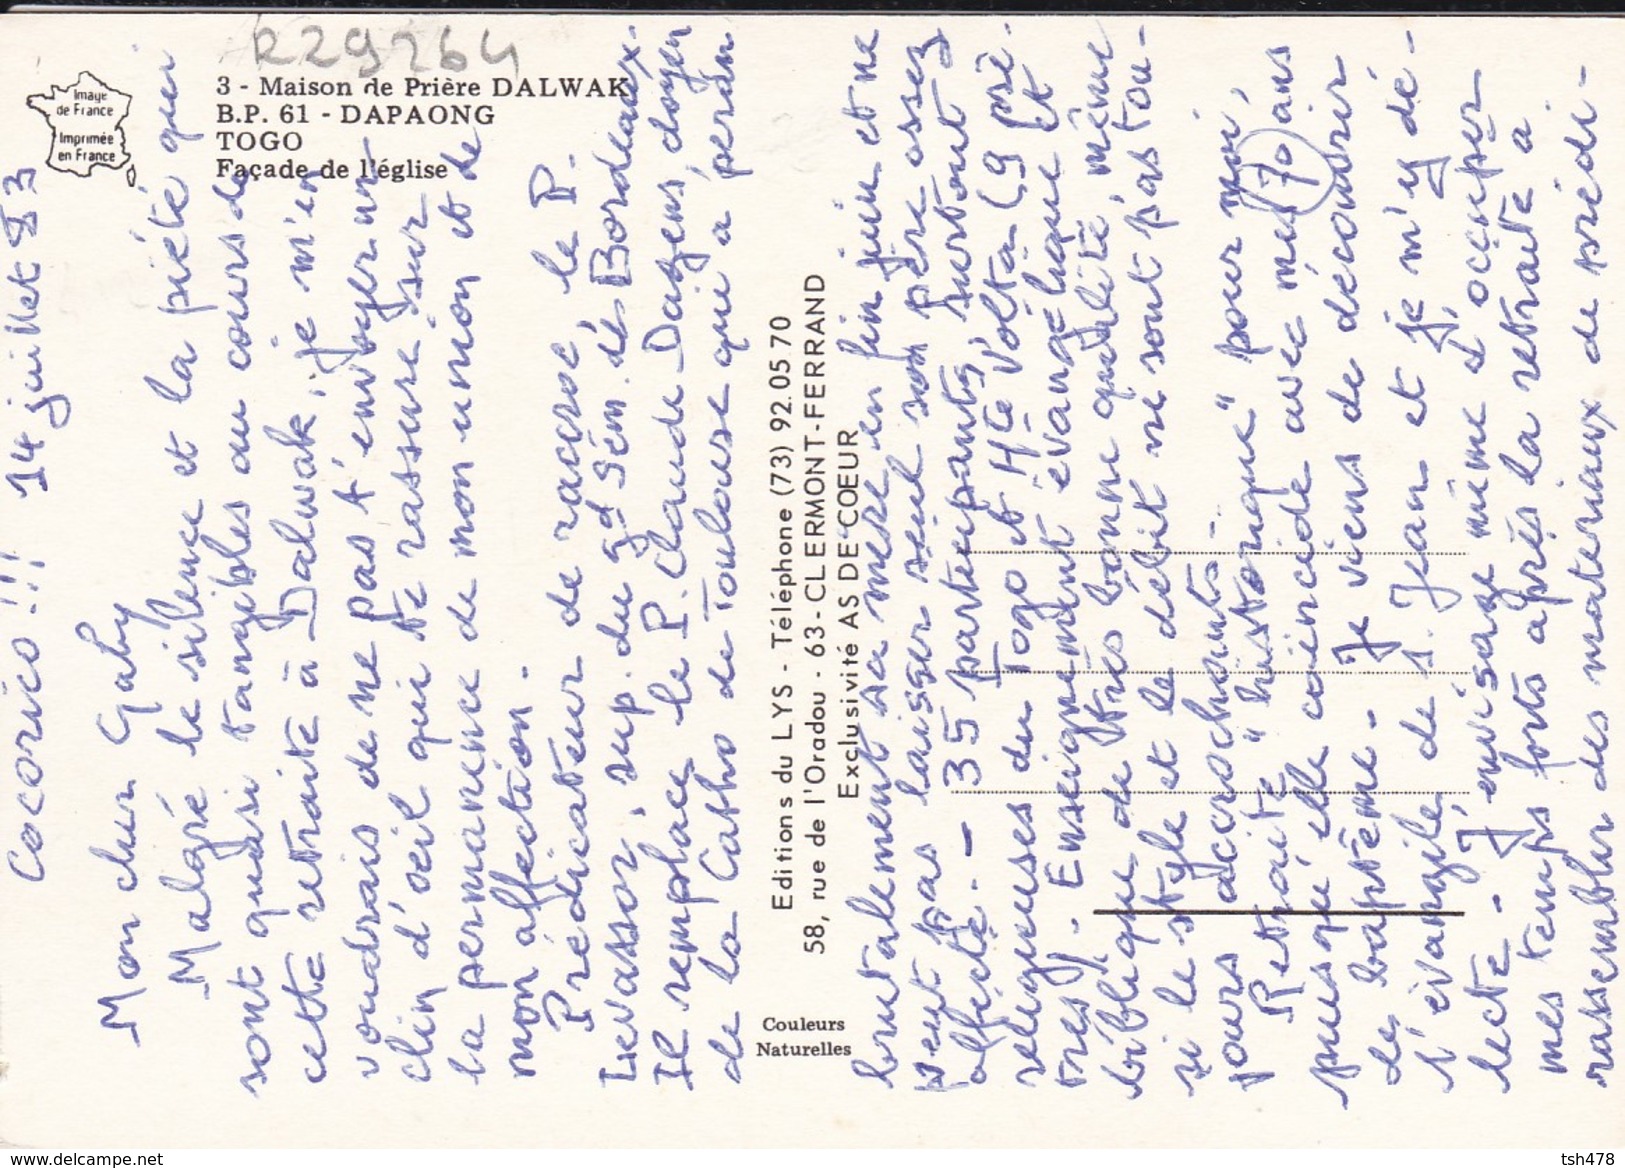 R29264
Image
de France
Imprimée
en France
3 - Maison de Prière DALWAK
B.P. 61 - DAPAONG
TOGO
Façade de l'église
Cocorico !!! 14 juillet 83
Mon cher Gaby
Malgré le silence et la piété qui
sont quasi tangibles au cours de
cette retraite à Dalwak, je m'en
voudrais de ne pas t'envoyer un
clin d'œil qui te rassure sur
la permanence de mon union et de
mon affection.
Prédicateur de raccroc, le P.
Levassor, sup. du gd Sém. de Bordeaux.
Il remplace le P. Claude Dagens, doyen
de la Catho de Toulouse qui a perdu
Editions du LYS - Téléphone (73) 92.05.70
58, rue de l'Oradou - 63 - CLERMONT-FERRAND
Exclusivité AS DE COEUR
Couleurs
Naturelles
brutalement sa mère en fin juin et ne
peut pas laisser seul son père assez
affecté. - 35 participants, surtout
religieuses du Togo et Hte Volta (9 prê-
tres). Enseignement évangélique et
biblique de très bonne qualité, même
si le style et le débit ne sont pas tou-
jours accrochants -
Retraite "historique" pour moi,
puisqu'elle coïncide avec mes 70 ans
de baptême - Je viens de découvrir
l'évangile de S. Jean et je m'y dé-
lecte - J'envisage même d'occuper
mes temps forts après la retraite à
rassembler des matériaux de prédi-
www.delcampe.net
tsh478